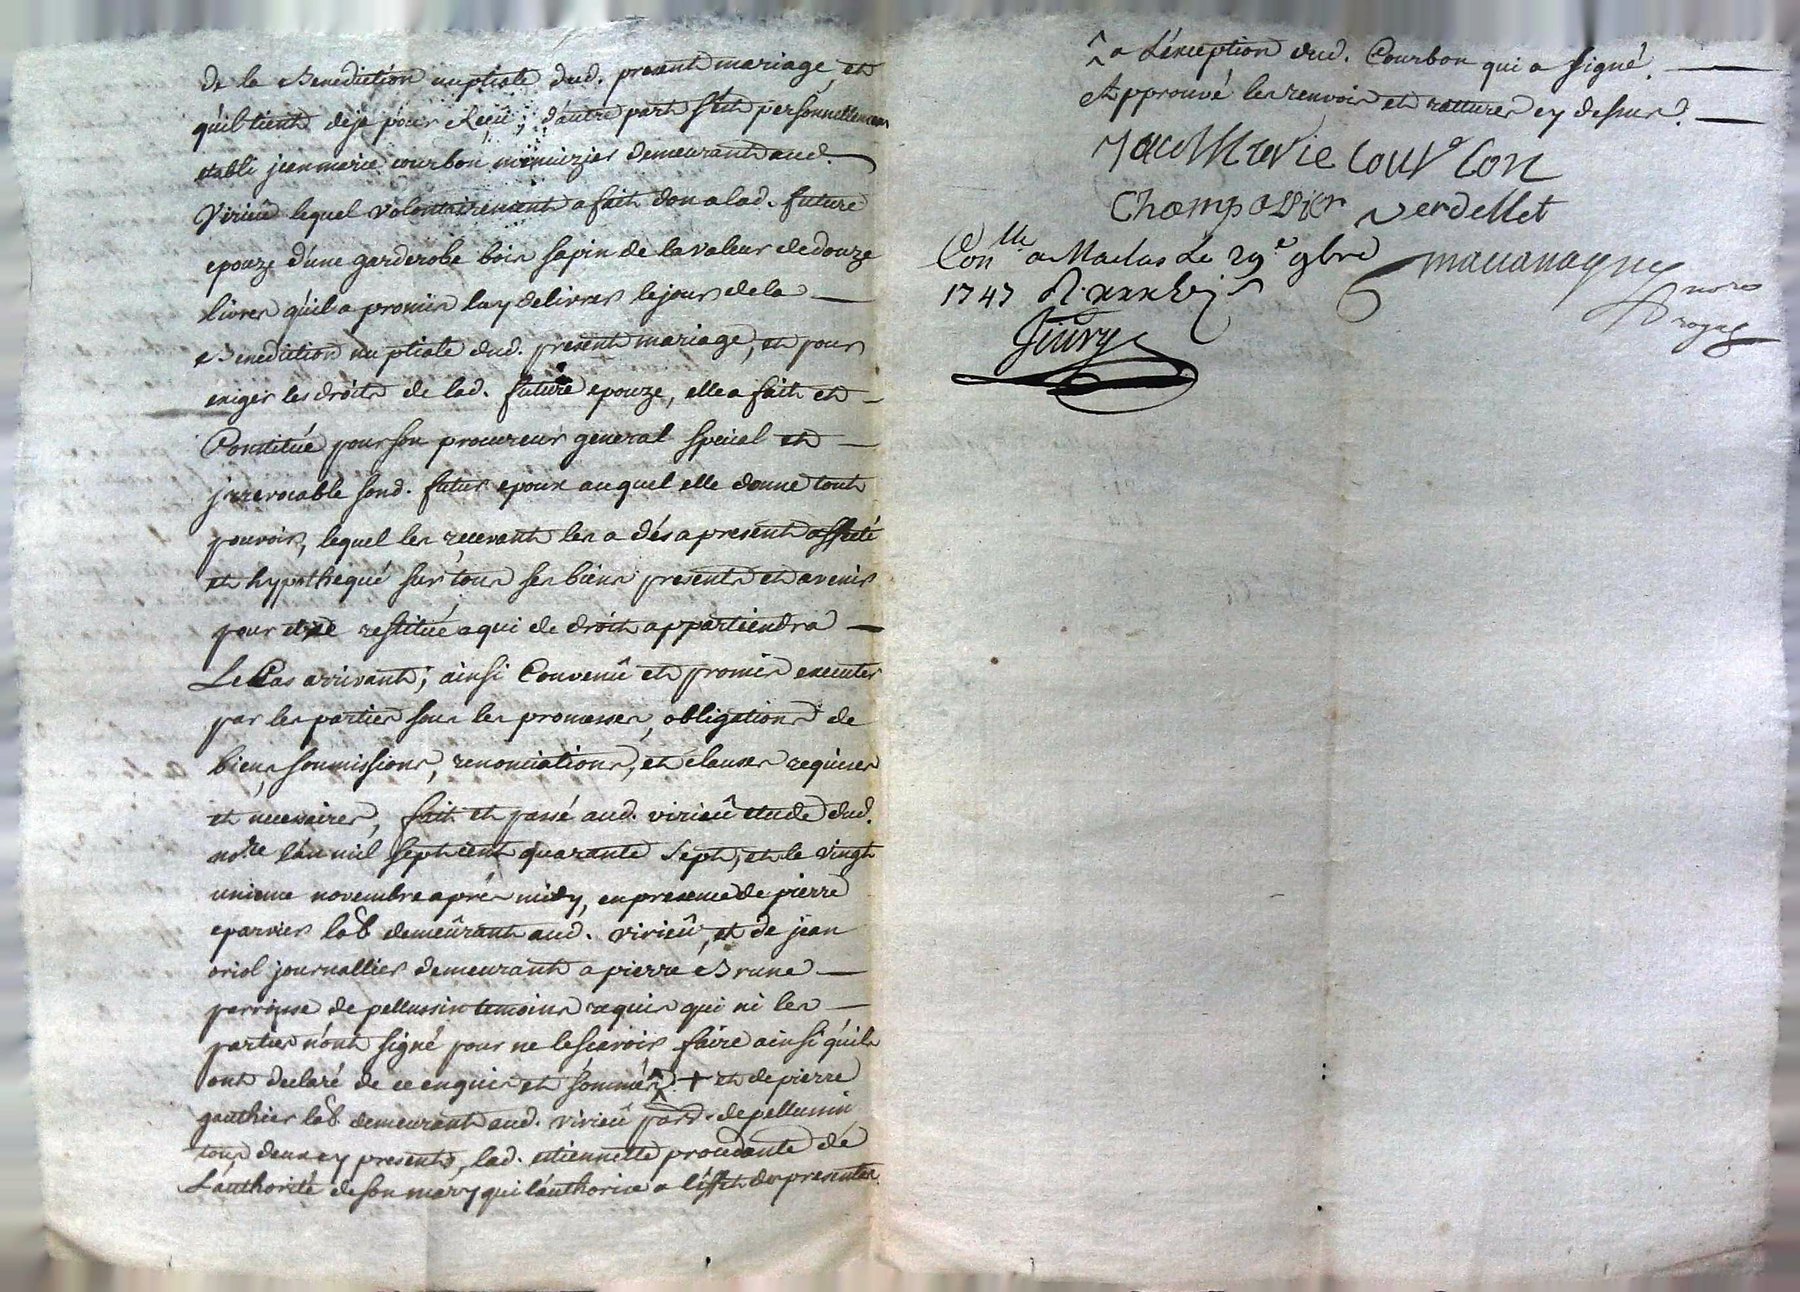 de la Benediction nuptiale dud. present mariage, et
qu'il tient deja pour Reçu ; d'autre part s'est personnellement
etabli jean marie courbon menuizier demeurant aud.
Virieû lequel volontairement a fait don a lad. future
epouze d'une garderobe bois sapin de la valeur de douze
livres qu'il a promis luy delivrer le jour de la
Benediction nuptiale dud. present mariage, et pour
exiger les droits de lad. future epouze, elle a fait et
Constitué pour son procureur general special et
jrrevocable sond. futur epoux auquel elle donne tout
pouvoir, lequel les recevant les a dés a present affecté
et hypothequé sur tous ses biens presents et avenir
pour etre restitué a qui de droit appartiendra
Le Cas arrivant ; ainsi Convenû et promis executer
par les parties sous les promesses, obligations de
biens soumissions, renonciations, et clauses requises
et necessaires, fait et passé aud. virieû etude dud.
nore l'an mil sept cent quarante sept, et le vingt
unieme novembre aprés midy, en presence de pierre
eparvier lab demeûrant aud. virieû, et de jean
oriol journallier demeurant a pierre Brune
parroisse de pellussin temoins requis qui ni les
parties n'ont signé pour ne le scavoir faire ainsi qu'ils
ont declaré de ce enquis et sommés + et de pierre
gauthier lab demeurant aud. virieû parr. de pellussin
tous deux cy presents, lad. etiennette procedante de
L'authorité de son mary qui l'authorise a l'éffet des presentes
a L'éxception dud. Courbon qui a signé.
Approuvé les renvois et ratures cy dessus.
Courbon
Champavier verdellet
Con.lle a Maclas Le 29.e 9bre
1747